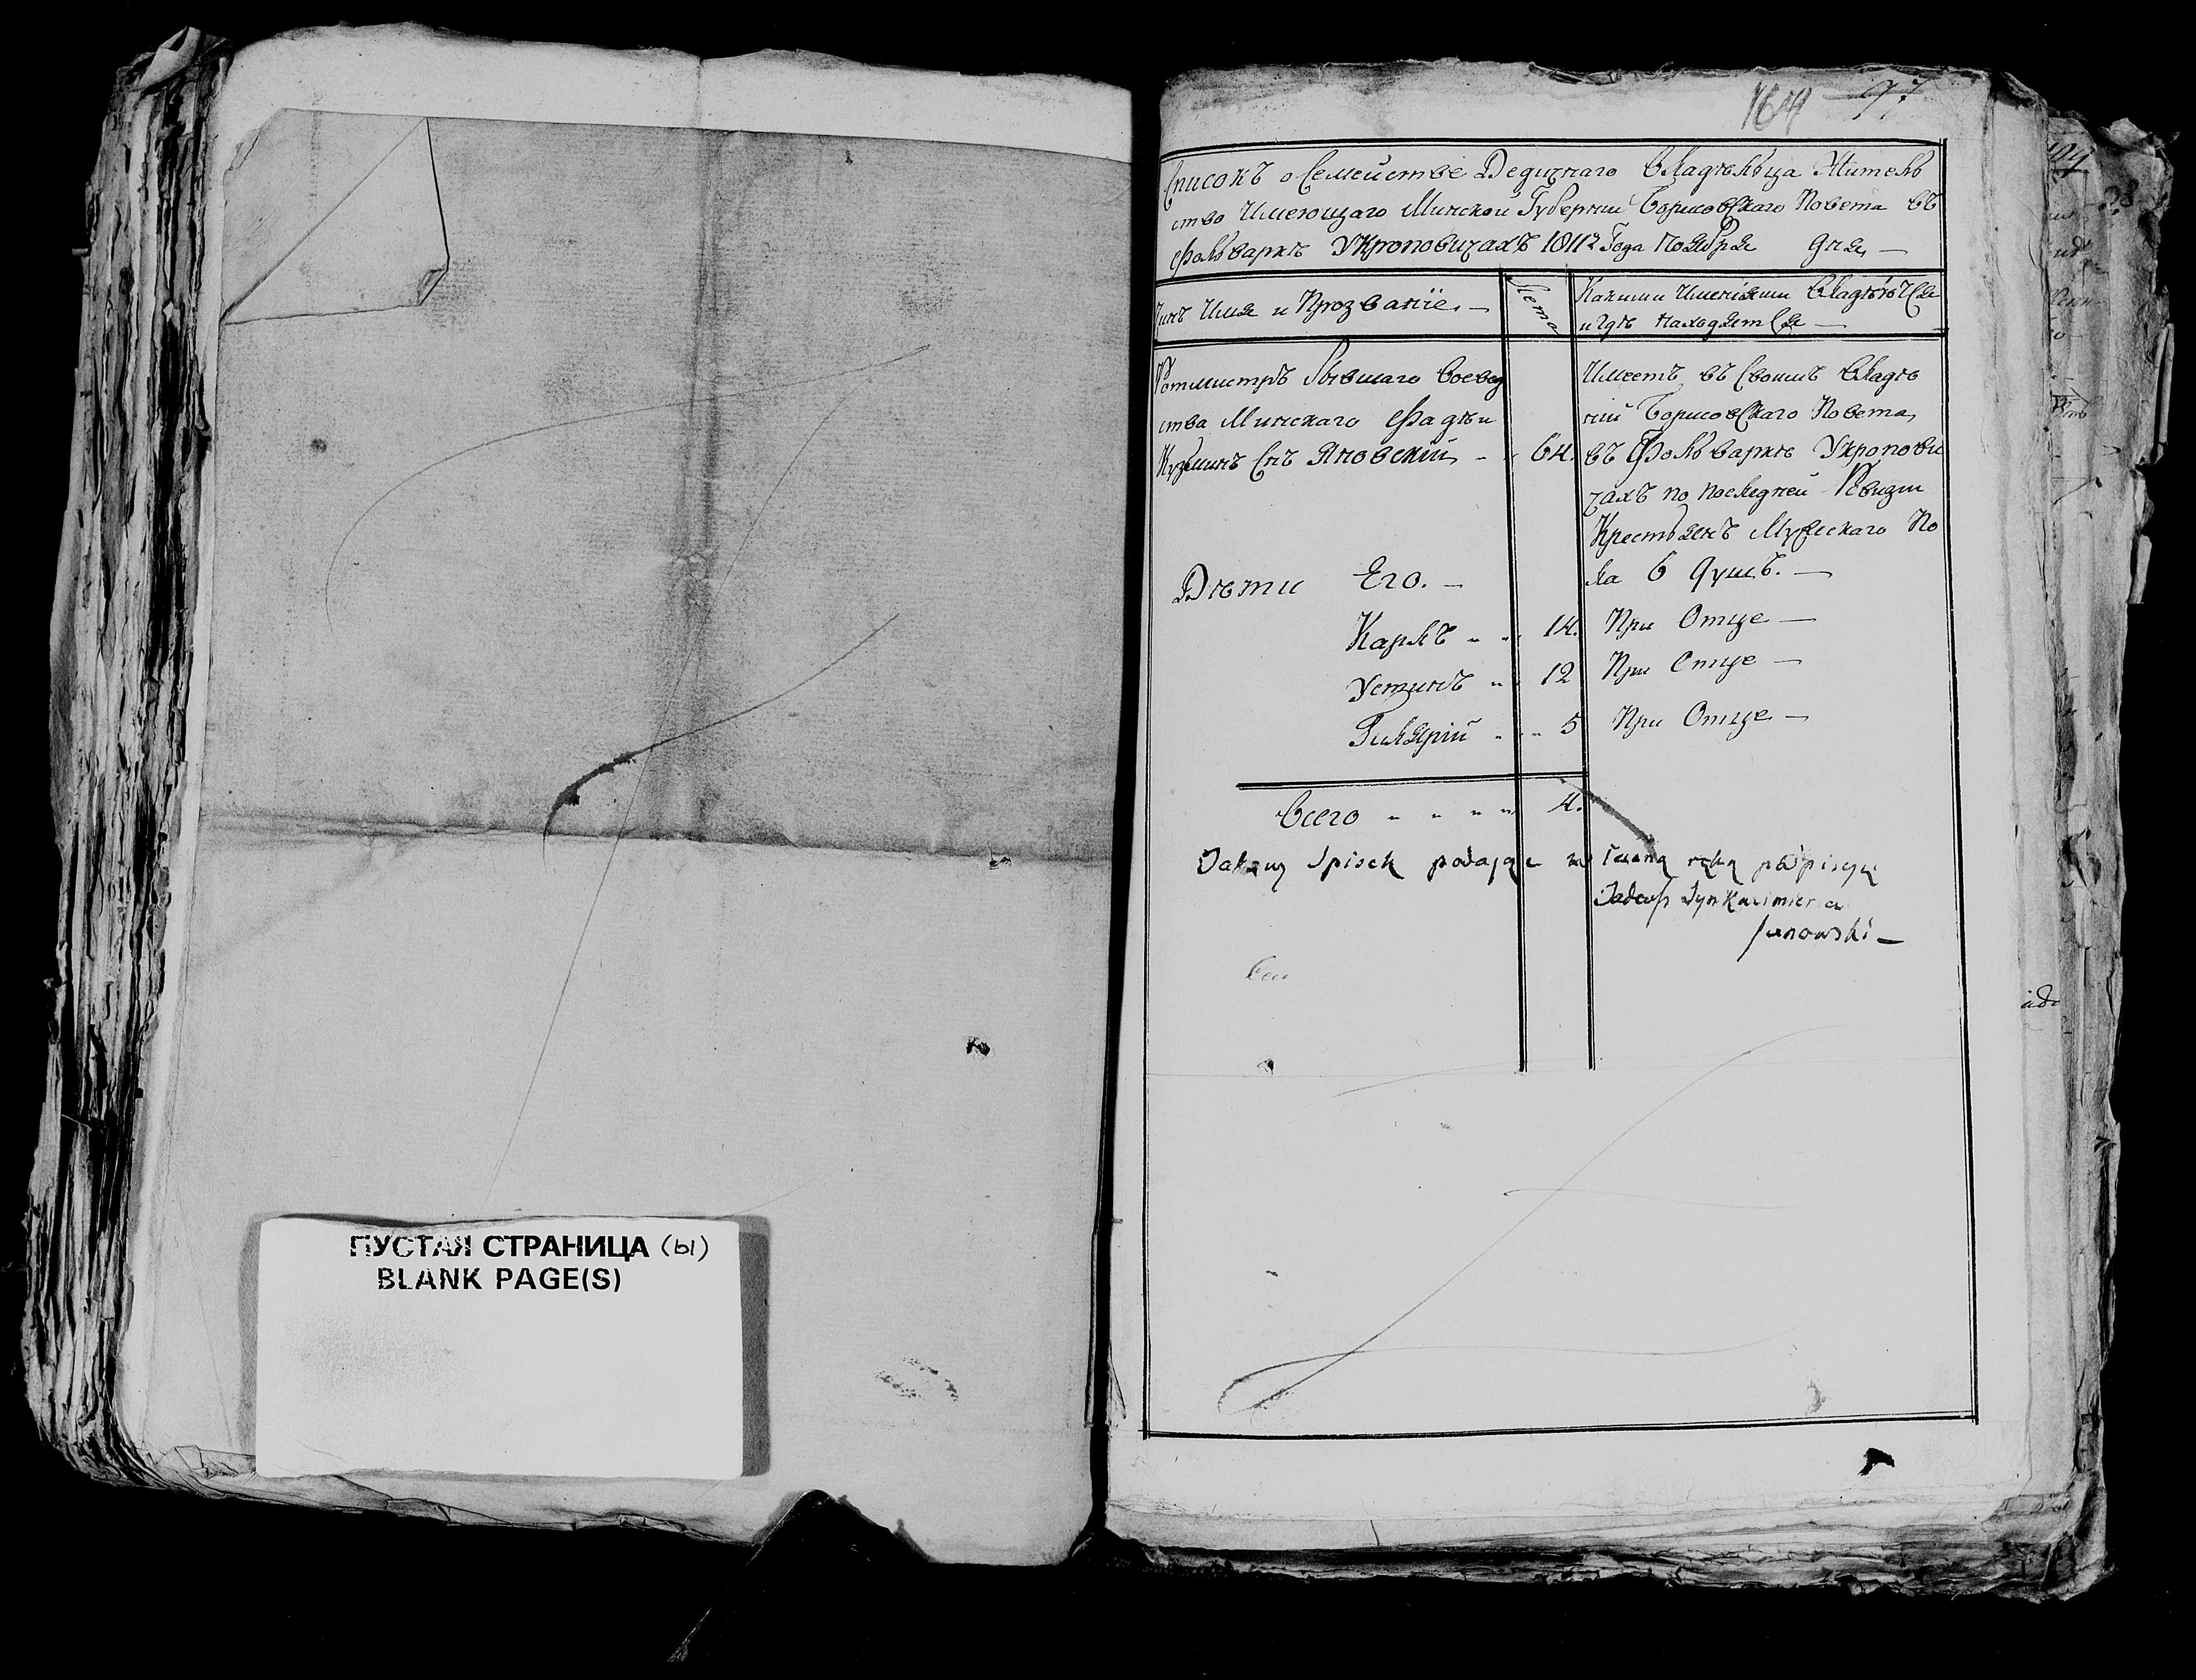 ПУСТАЯ СТРАНИЦА (ы)
BLANK PAGE(S)
164 97
Списокъ о Семействе Дедичнаго Владѣльца Житель
ство Имеющаго Минской Губернии Борисовскаго Повета въ
фольваркѣ Укроповичахъ 1811го Года Ноября дня —
Чинъ Имя и Прозваніе. —
Лета
Какими Имениями Владѣетъ
и гдѣ находятся —
Ротмистръ бывшаго Воевод
ства Минскаго Фадѣи
Кузминъ Снъ Яновскій - - 64.
Имеетъ въ Своимъ Владѣ
нии Борисовскаго Повета,
въ Фольваркѣ Укропови
чахъ по последней Ревизии
Крестьянъ Мужескаго По
ла 6 душъ. —
Дѣти Его. —
Карлъ - - 14. При Отце —
Устинъ - - 12 При Отце —
Гилярій - - 5 При Отце —
Всего - - - - 4.
Takowy Spisek podając własną ręką podpisuję
Tadeusz Syn Kazimierza
Janowski —